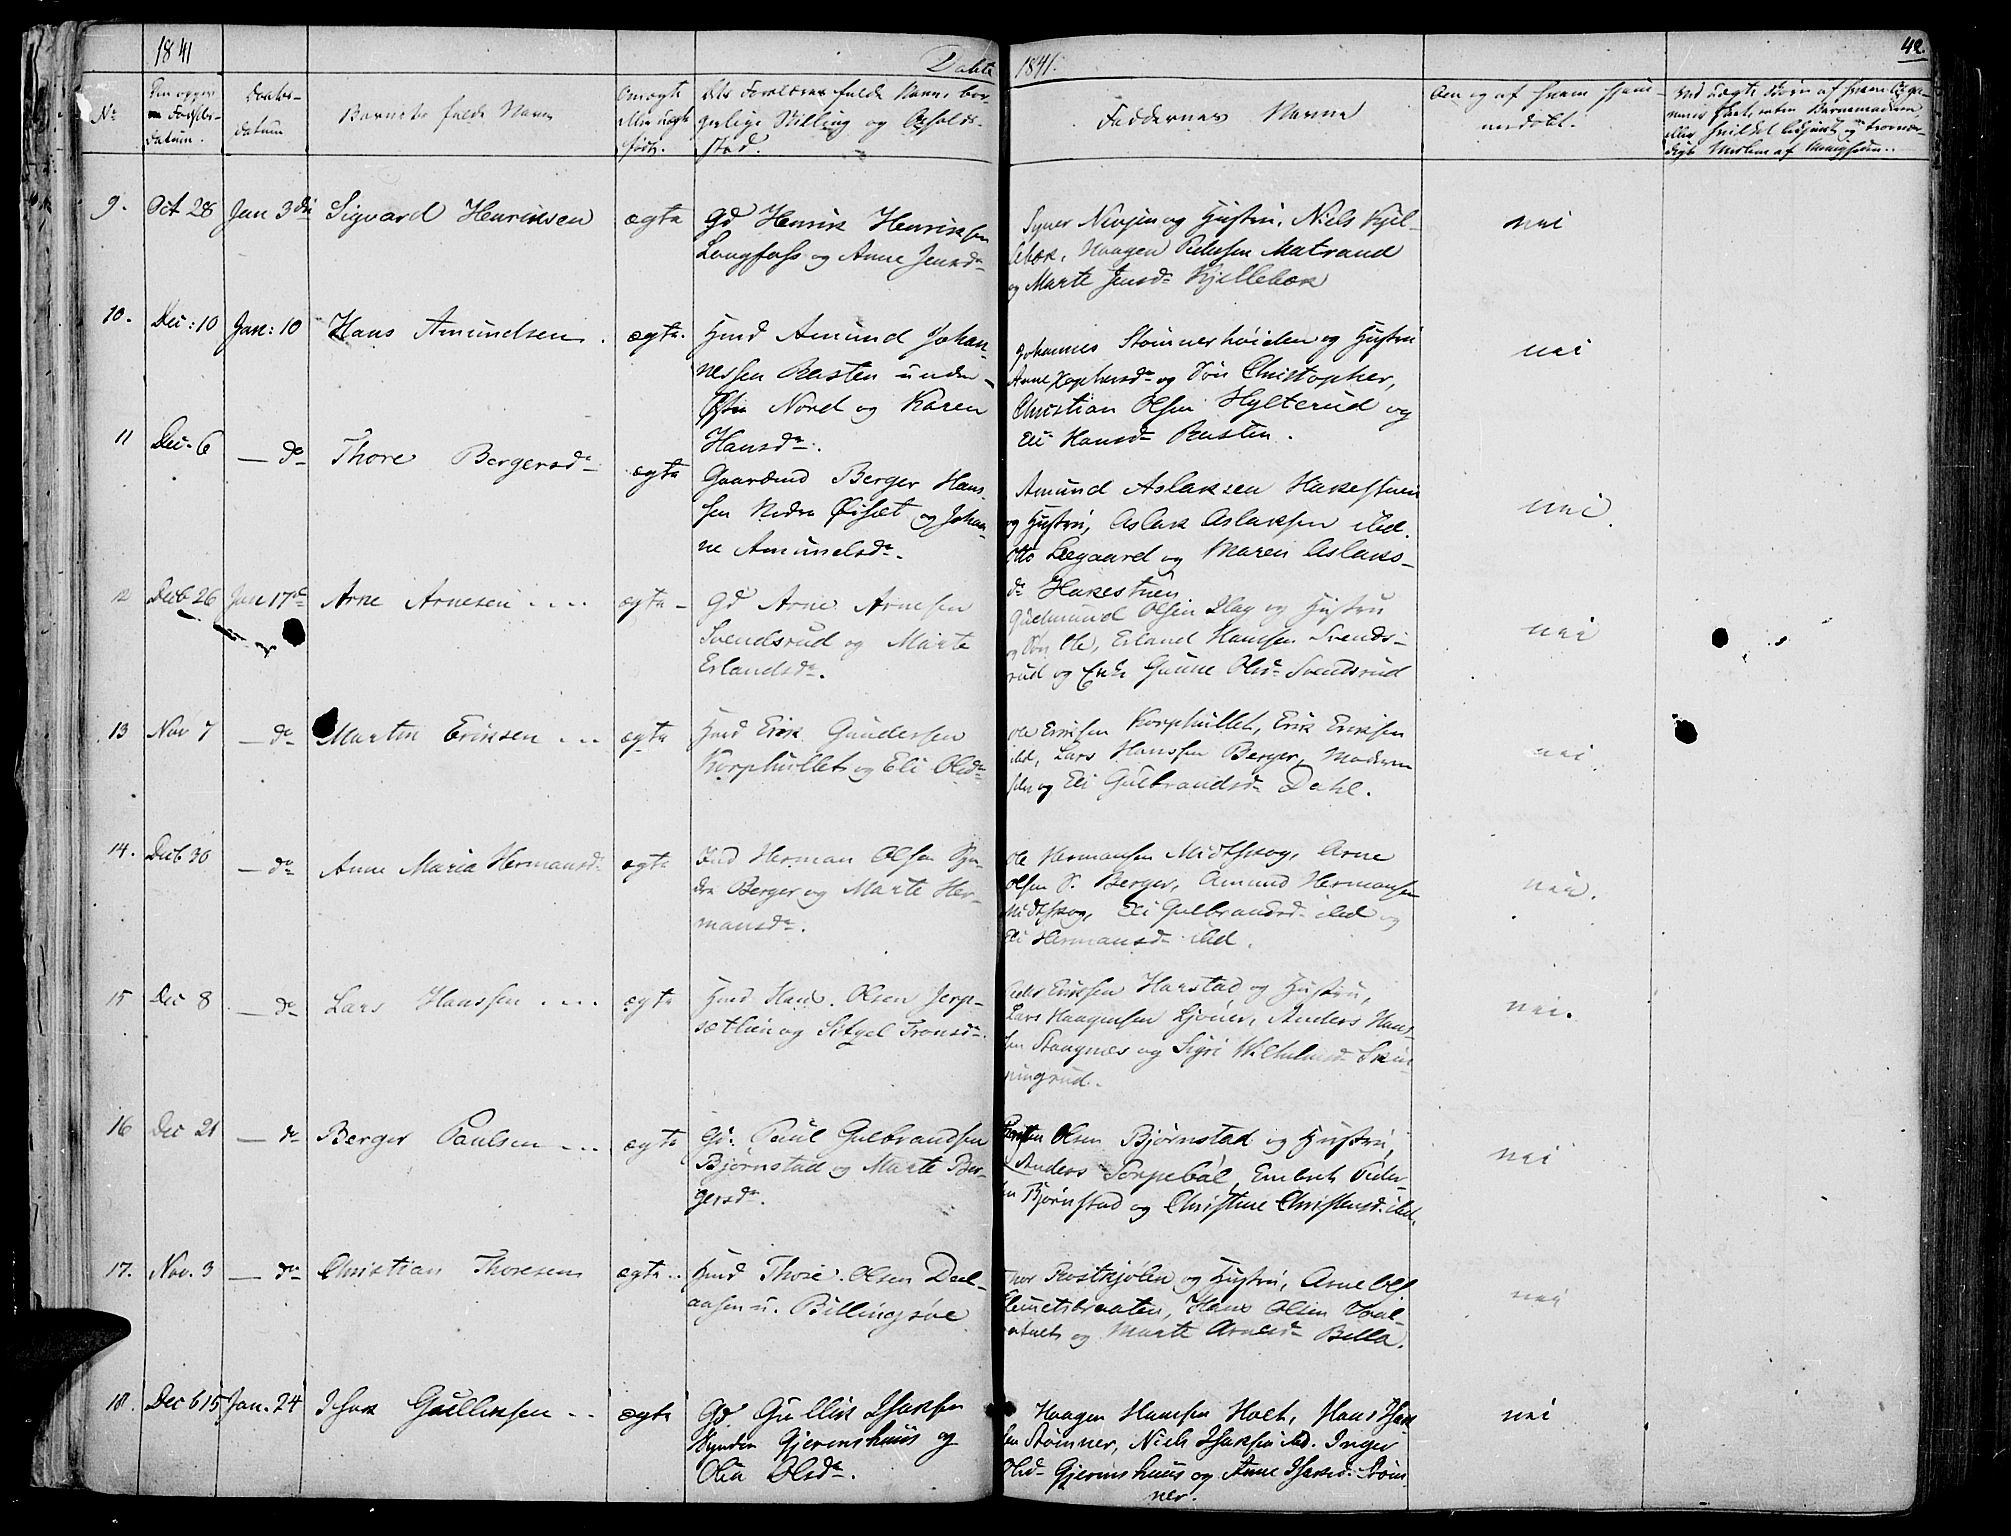 1841
Døbte
1841.
42.
No
Den opgivne Fødsels-
datum.
Daabs-
datum
Barnets fulde Navn
Om ægte
eller uægte
født.
Forældres fulde Navn, bor-
gerlige Stilling og Opholds-
sted.
Faddernes Navne
Om og af hvem hjem-
medøbt.
9.
Oct 28
Jan 3die
Sigvard Henriksen
ægte
Gd Henrik Henriksen
Langfoss og Anne Jensdr
og Hustru, Niels Kjel-
lebæk, Haagen Pedersen Matrand
og Marte Jensdr Kjellebæk
nei
10.
Dec: 10
Jan: 10
Hans Amundsen
ægte.
Huusd Amund Johan-
nessen Rasten under
Østre Nord og Karen
Hansdr.
Johannes Stømnerhøiden og Hustru
Anne og Søn Christopher,
Christian Olsen Hylterud og
Eli Hansdr Rasten.
nei
11
Dec. 6
— do
Thore Bergersdr
ægte
Gaardmd Berger Hans-
sen Nedre Øiset og Johan-
ne Amundsdr.
Amund Aslaksen Hakestuen
og Hustru, Aslak Aslaksen ibid.
Otto Leegaard og Maren Aslaks-
dr Hakestuen
nei.
12
Decb 26
Jan 17de
Arne Arnesen
ægte
Gd Arne Arnesen
Svendsrud og Marte
Erlandsdr.
Gudmund Olsen Slag og Hustru
og Søn Ole, Erland Hansen Svends-
rud og Enke Gunne Olsdr Svendsrud
nei
13
Nov 7
— do
Martin Eriksen
ægte
Huusd Erik Gundersen
Korphullet og Eli Olsdr
Ole Eriksen Korphullet, Erik Eriksen
ibid, Lars Hanssen Berger, Moderen
selv og Eli Gulbrandsdr Dahl.
nei.
14.
Decb 30
— do
Anne Maria Hermansdr
ægte
Ind Herman Olsen Søn-
dre Berger og Marte Her-
mansdr.
Ole Hermansen Midtskog, Arne
Olsen S. Berger, Amund Hermansen
Midtskog, Eli Gulbrandsdr ibid og
Eli Hermansdr ibid.
nei.
15
Dec 8
— do
Lars Hanssen
ægte
Huusd Hans Olsen Jerp-
sætlien og Sitzel Tronsdr.
Niels Erikssen Harstad og Hustru,
Lars Haagensen Ljøner, Anders Hans-
sen Stangnæs og Sigri Wilhelmsdr Skin-
ningrud.
nei.
16
Dec 21
— do
Berger Paulsen
ægte
Gd. Paul Gulbrandsen
Bjørnstad og Marte Ber-
gersdr.
Christen Olsen Bjørnstad og Hustru,
Anders Torpebøl, Embret Peder-
sen Bjørnstad og Christine Christensdr. ibid.
nei
17.
Nov. 3
— do
Christian Thoresen
ægte
Huusd Thore Olsen Dael-
aasen u. Billingsøe
Thor Rostkjølen og Hustru, Arne Ols
Klemetsbraaten, Hans Olsen
og Marte Arnesdr Bella.
nei
18.
Decb 15
Jan. 24
Isak Gulliksen
ægte
Gd. Gullik Isaksen
Søndre Gjermshuus og
Olea Olsdr.
Haagen Hansen Holt, Hans Isak-
sen Stømner, Niels Isaksen ibid. Inger
Olsdr Gjermshuus og Anne Isaksd. Støm-
ner.
nei